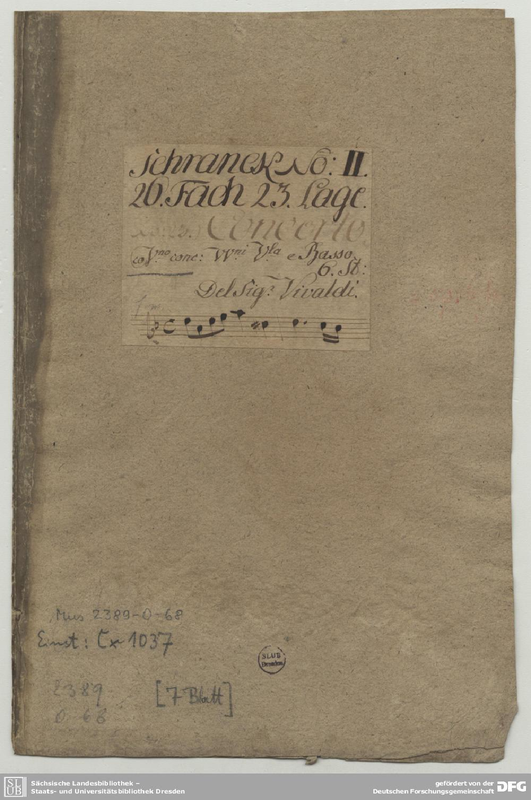 Schranck No: II.
26. Fach 23. Lage.
Concerto
co Vno conc: VVni Vla e Basso.
6. St:
Del Sigr. Vivaldi.
Mus 2389-O-68
Einst: Cx 1037
2389
O 68
[7 Blatt]
SLUB
Dresden
SLUB
Sächsische Landesbibliothek –
Staats- und Universitätsbibliothek Dresden
gefördert von der
Deutschen Forschungsgemeinschaft
DFG